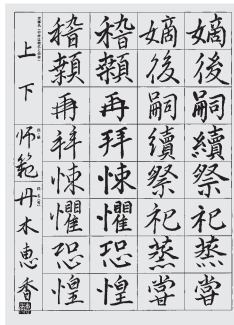 嫡後嗣續祭祀蒸嘗
嫡後嗣續祭祀蒸嘗
稽顙再拜悚懼恐惶
稽顙再拜悚懼恐惶
上下
師範 丹木恵香